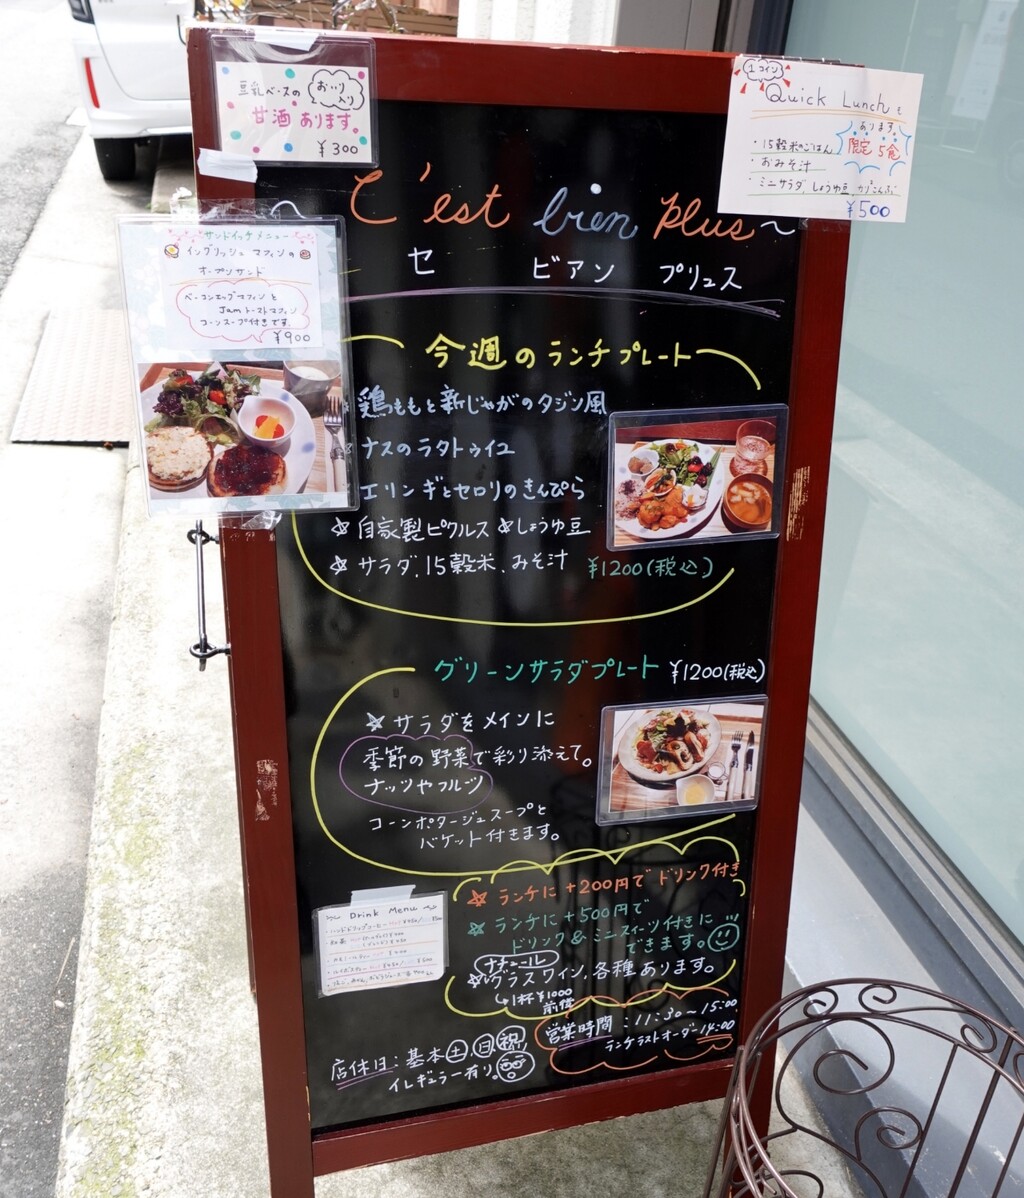 豆乳ベースの おいり入り
甘酒 あります。
¥300
1コイン
Quick Lunchも
あります
・15穀米のごはん
限定 5食
・おみそ汁
・ミニサラダ、しょうゆ豆、
¥500
C'est bien plus
セ ビアン プリュス
サンドイッチメニュー
イングリッシュ マフィンの
オープンサンド
ベーコンエッグマフィンと
Jamトーストマフィン
コーンスープ付きです。
¥900
今週のランチプレート
鶏ももと新じゃがのタジン風
ナスのラタトゥイユ
エリンギとセロリのきんぴら
☆自家製ピクルス ☆しょうゆ豆
☆サラダ、15穀米、みそ汁 ¥1200(税込)
グリーンサラダプレート ¥1200(税込)
☆サラダをメインに
季節の野菜で彩り添えて。
ナッツやフルーツ
コーンポタージュスープと
バケット付きます。
☆ランチに+200円でドリンク付き
☆ランチに+500円で
ドリンク&ミニスイーツ付きに
できます。
ナチュール
☆グラスワイン、各種あります。
↳1杯¥1000
前後
Drink Menu
・ハンドドリップコーヒー
・紅茶
営業時間:11:30~15:00
ランチラストオーダー14:00
店休日:基本土、日、祝
イレギュラー有り。